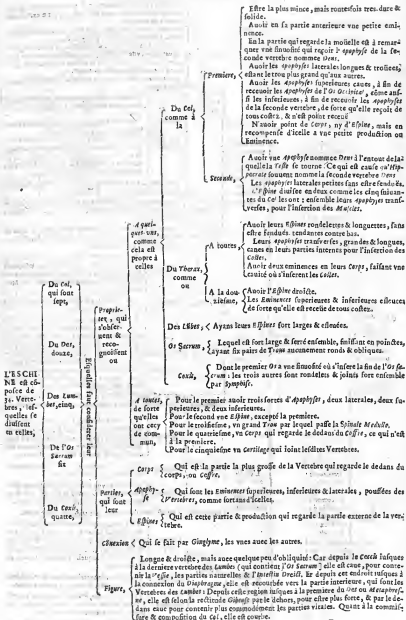 Estre la plus mince, mais toutesfois tres dure &
solide.
Auoir en sa partie anterieure vne petite emi-
nence.
En la partie qui regarde la moüelle est à remar-
quer vne sinuosité qui reçoit l'apophyse de la se-
conde vertebre nommee Dens.
Auoir les apophyses laterales longues & troüees,
estant le trou plus grand qu'aux autres.
Auoir les Apophyses superieures caues, à fin de
receuoir les Apophyses de l'Os Occipital, côme aus-
si les inferieures, à fin de receuoir les Apophyses
de la seconde vertebre, de sorte qu'elle reçoit de
tous costez, & n'est point receuë
N'auoir point de Corps, ny d'Espine, mais en
recompense d'icelle a vne petite production ou
Eminence.
Premiere,
Du Col,
comme à
la
Seconde,
Auoir vne Apophyse nomme Dens à l'entour de la-
quelle la Teste se tourne. Ce qui est cause qu'Hip-
pocrate souuent nomme la seconde vertebre Dens
Les apophyses laterales petites sans estre fenduës.
L'Espine diuisee en deux comme les cinq suiuan-
tes du Col les ont : ensemble leurs apophyses trans-
uerses, pour l'insertion des Muscles.
A quel-
ques vns,
comme
cela est
propre à
celles
Du Thorax,
comme
ou
A toutes,
Auoir leurs Espines rondelettes & longuettes, sans
estre fenduës, tendantes contre bas.
Leurs apophyses transuerses, grandes & longues,
caues en leurs parties internes pour l'insertion des
Costes.
Auoir deux eminences en leurs Corps, faisant vne
cauité où s'inserent les Costes.
A la dou-
ziesme,
Auoir l'Espine droicte.
Les Eminences superieures & inferieures esleuees
de sorte qu'elle est receüe de tous costez.
Des Lübes,
Ayans leurs Espines fort larges & esleuees.
Os Sacrum,
Lequel est fort large & serré ensemble, finissant en pointe,
ayant six pairs de Trous aucunement ronds & obliques.
Coxis,
Dont le premier Os a vne sinuosité où s'insere la fin de l'Os sa-
crum : les trois autres sont rondelets & joints fort ensemble
par Symphise.
Du Col,
qui sont
sept,
Du Dos,
douze,
L'ESCHI-
NE est cô-
posee de
34. Verte-
bres, les-
quelles se
diuisent
en celles,
Des Lum-
bes, cinq,
De l'Os
Sacrum
six
Du Coxis,
quatre,
Esquelles faut considerer leur
Proprie-
tez, qui
s'obser-
uent &
reco-
gnoissent
ou
A toutes,
de sorte
qu'elles
ont cecy
de com-
mun,
Pour le premier auoir trois sortes d'Apophyses, deux laterales, deux su-
perieures, & deux inferieures.
Pour le second vne Espine, excepté la premiere.
Pour le troisiesme, vn grand Trou par lequel passe la Spinale Medulle.
Pour le quatriesme, vn Corps qui regarde le dedans du Coffre, ce qui n'est
à la premiere.
Pour le cinquiesme vn Cartilage qui joint lesdites Vertebres.
Parties,
qui sont
leur
Corps
Qui est la partie la plus grosse de la Vertebre qui regarde le dedans du
corps, ou Coffre.
Apophy-
se
Qui sont les Eminences superieures, inferieures & laterales, poussees des
Vertebres, comme sortans d'icelles.
Espines
Qui est certe partie & production qui regarde la partie externe de la ver-
tebre.
Cōnexion
Qui se fait par Ginglyme, les vnes auec les autres.
Figure,
Longue & droicte, mais auec quelque peu d'obliquité : Car depuis le Coccix iusques
à la derniere vertebre des Lumbes (qui contient l'Os Sacrum) elle est caue, pour conte-
nir la Vessie, les parties naturelles & l'Intestin Droict. Et depuis cet endroit iusques à
la connexion du Diaphragme, elle est recourbée vers la partie interieure, qui sont les
Vertebres des Lumbes : Depuis ceste region iusques à la premiere du Dos ou Metaphre-
ne, elle est selon sa rectitude Gibeuse par le dehors, pour estre plus forte, & par le de-
dans caue pour contenir plus commodément les parties vitales. Quant à la commis-
sure & composition du Col, elle est courbe.